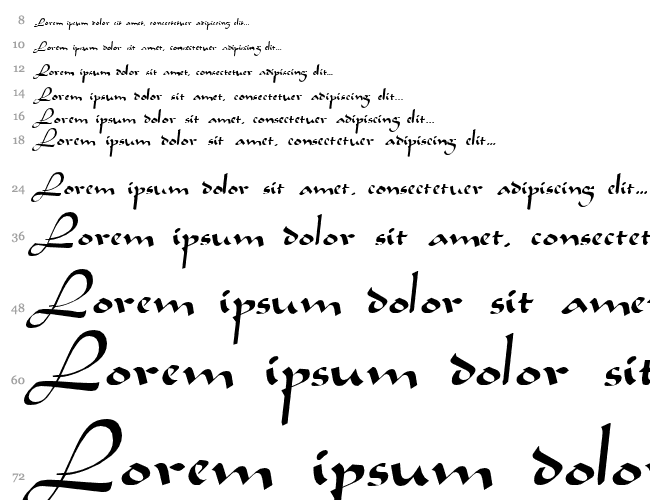 8 Lorem ipsum dolor sit amet, consectetuer adipiscing elit...
10 Lorem ipsum dolor sit amet, consectetuer adipiscing elit...
12 Lorem ipsum dolor sit amet, consectetuer adipiscing elit...
14 Lorem ipsum dolor sit amet, consectetuer adipiscing elit...
16 Lorem ipsum dolor sit amet, consectetuer adipiscing elit...
18 Lorem ipsum dolor sit amet, consectetuer adipiscing elit...
24 Lorem ipsum dolor sit amet, consectetuer adipiscing elit...
36 Lorem ipsum dolor sit amet, consectet
48 Lorem ipsum dolor sit ame
60 Lorem ipsum dolor sit
72 Lorem ipsum dolor